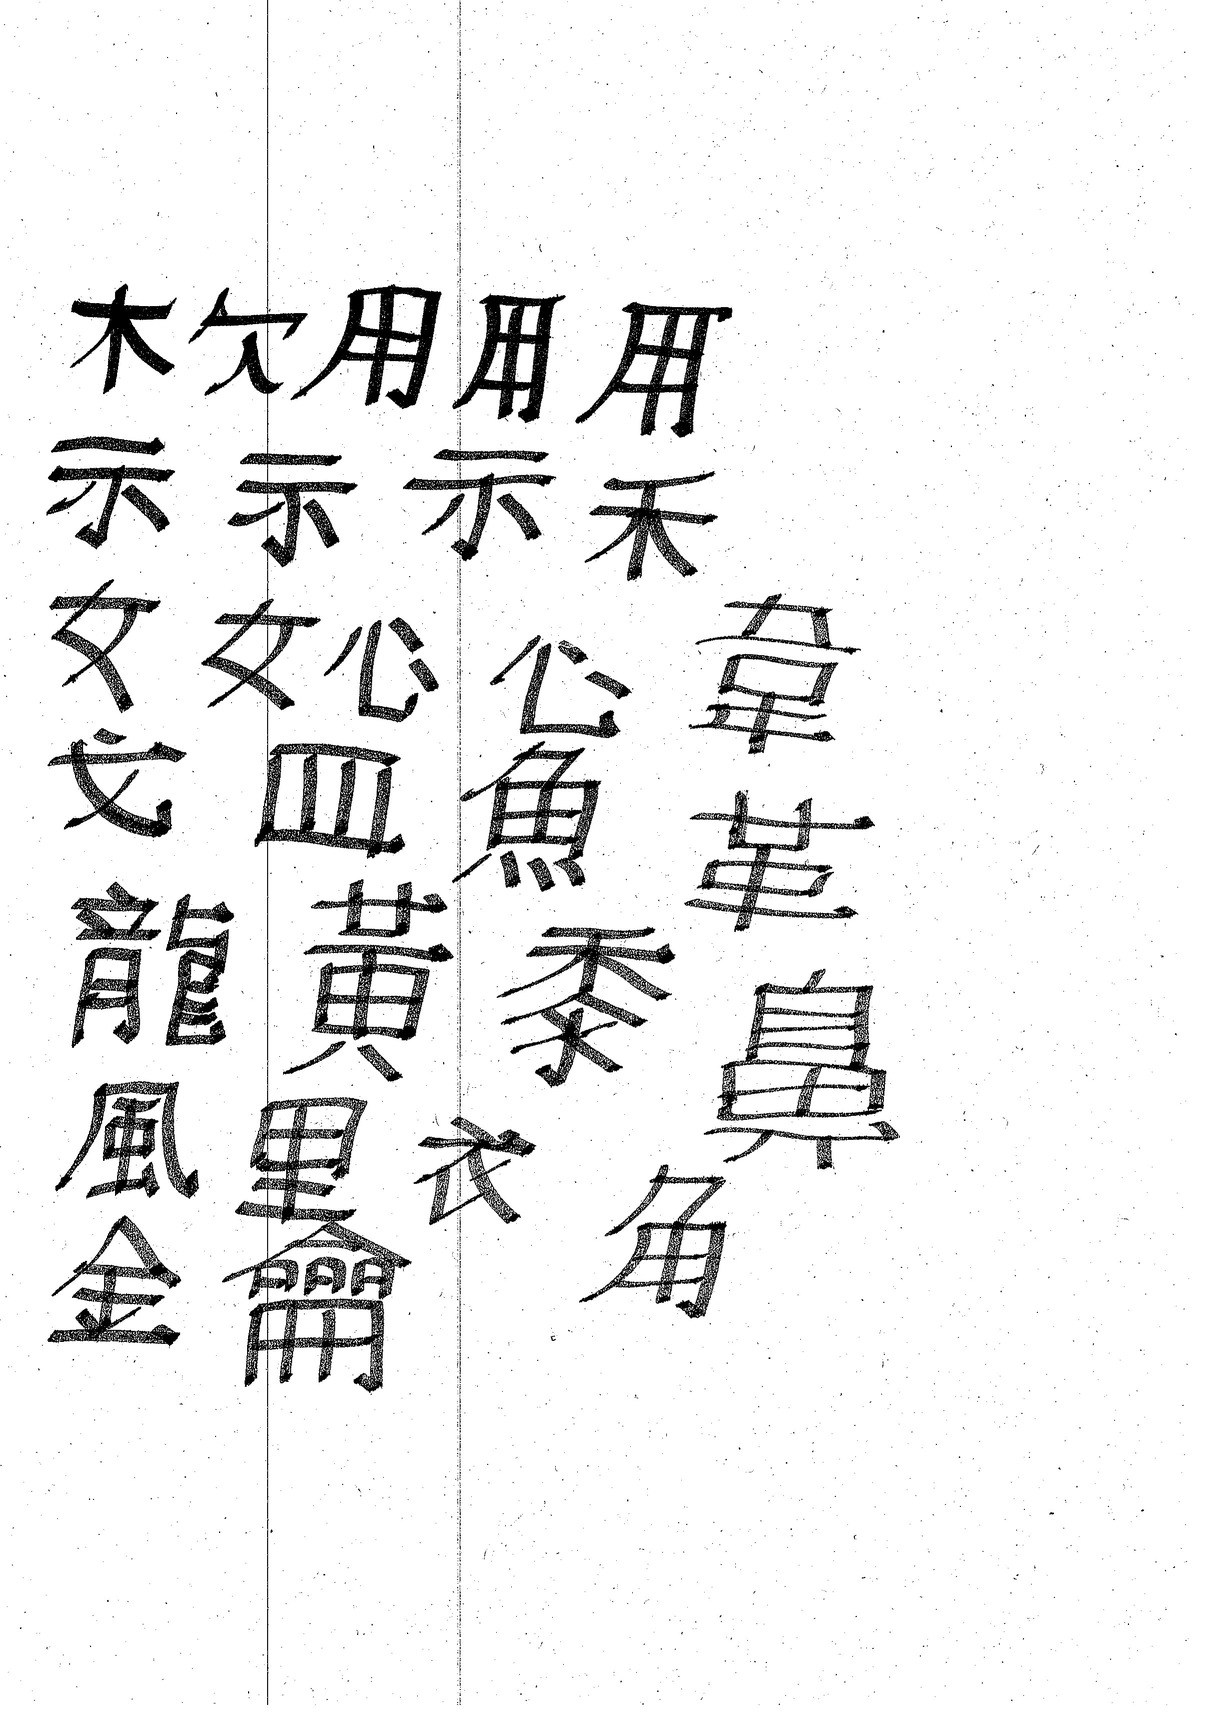 木欠用用用
示示示禾
女女心心韋
戈皿魚革
龍黃黍鼻
風里衣角
金龠